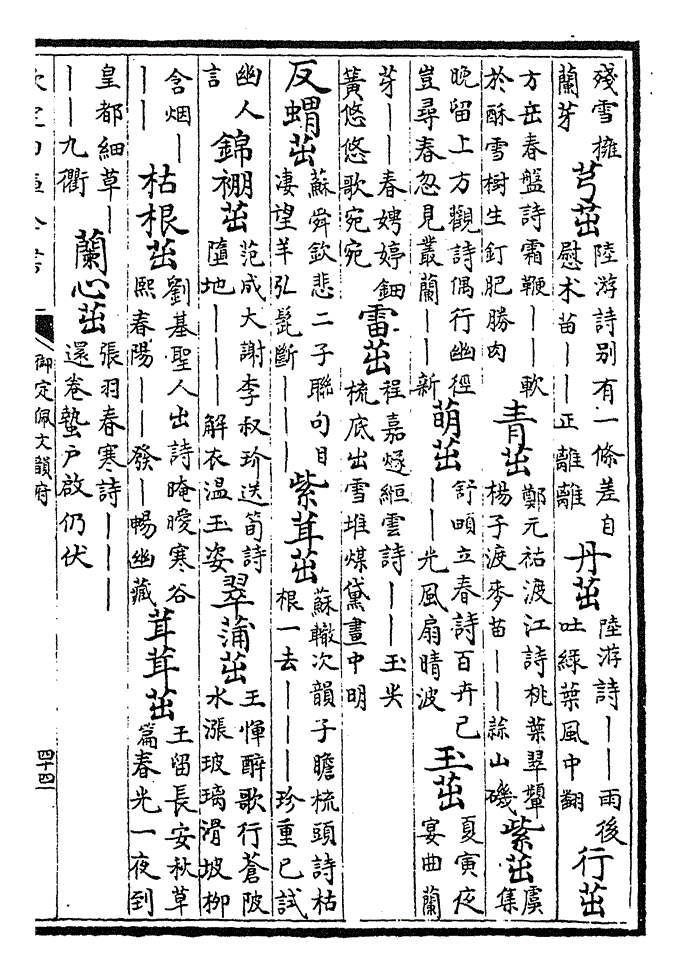 殘雪擁
蘭芽
芎茁
陸游詩别有一條差自
慰术苗——正離離
丹茁
陸游詩——雨後
吐緑葉風中翻
行茁
方岳春盤詩霜鞭——軟
於酥雪樹生釘肥勝肉
青茁
鄭元祐渡江詩桃葉翠顰
楊子渡麥苗——蒜山磯
紫茁
虞
集
晚留上方觀詩偶行幽徑
豈尋春忽見叢蘭——新
萌茁
舒頔立春詩百卉已
——光風扇晴波
玉茁
夏寅夜
宴曲蘭
芽——春娉婷鈿
簧悠悠歌宛宛
雷茁
程嘉燧絙雲詩——玉尖
梳底出雪堆煤黛畫中明
反蝟茁
蘇舜欽悲二子聯句目
凄望羊弘髭斷———
紫茸茁
蘇轍次韻子瞻梳頭詩枯
根一去———珍重已試
幽人
言
錦茁
范成大謝李叔玠送筍詩
隨地———解衣温玉姿
翠蒲茁
王惲醉歌行蒼陂
水漲玻璃滑坡栁
含烟—
——
枯根茁
劉基聖人出詩晻曖寒谷
熙春陽——發—暢幽藏
茸茸茁
王留長安秋草
篇春光一夜到
皇都細草—
——九衢
蘭心茁
張羽春寒詩———
還卷蟄户啟仍伏
御定佩文韻府
四十四